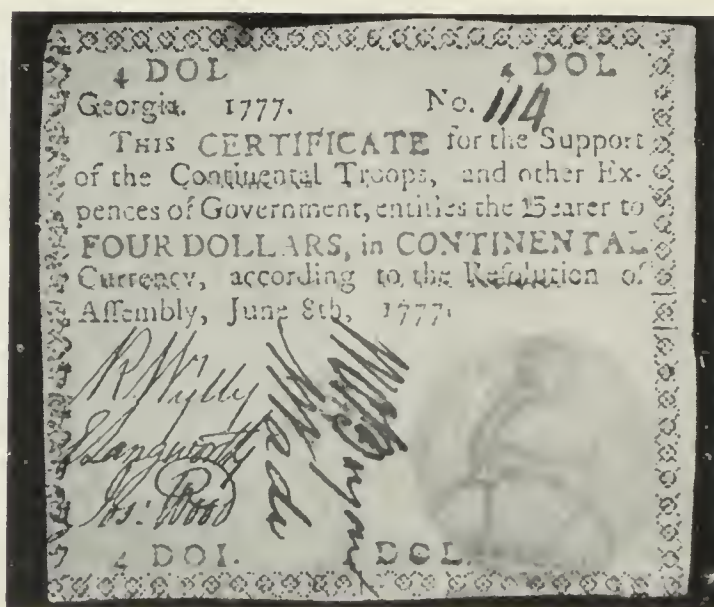 4 DOL 4 DOL
Georgia. 1777. No. 114
THIS CERTIFICATE for the Support
of the Continental Troops, and other Ex-
pences of Government, entitles the Bearer to
FOUR DOLLARS, in CONTINENTAL
Currency, according to the Reſolution of
Aſſembly, June 8th, 1777.
R. Wylly
E Langworthy
Jos: Wood
4 DOL. DOL.